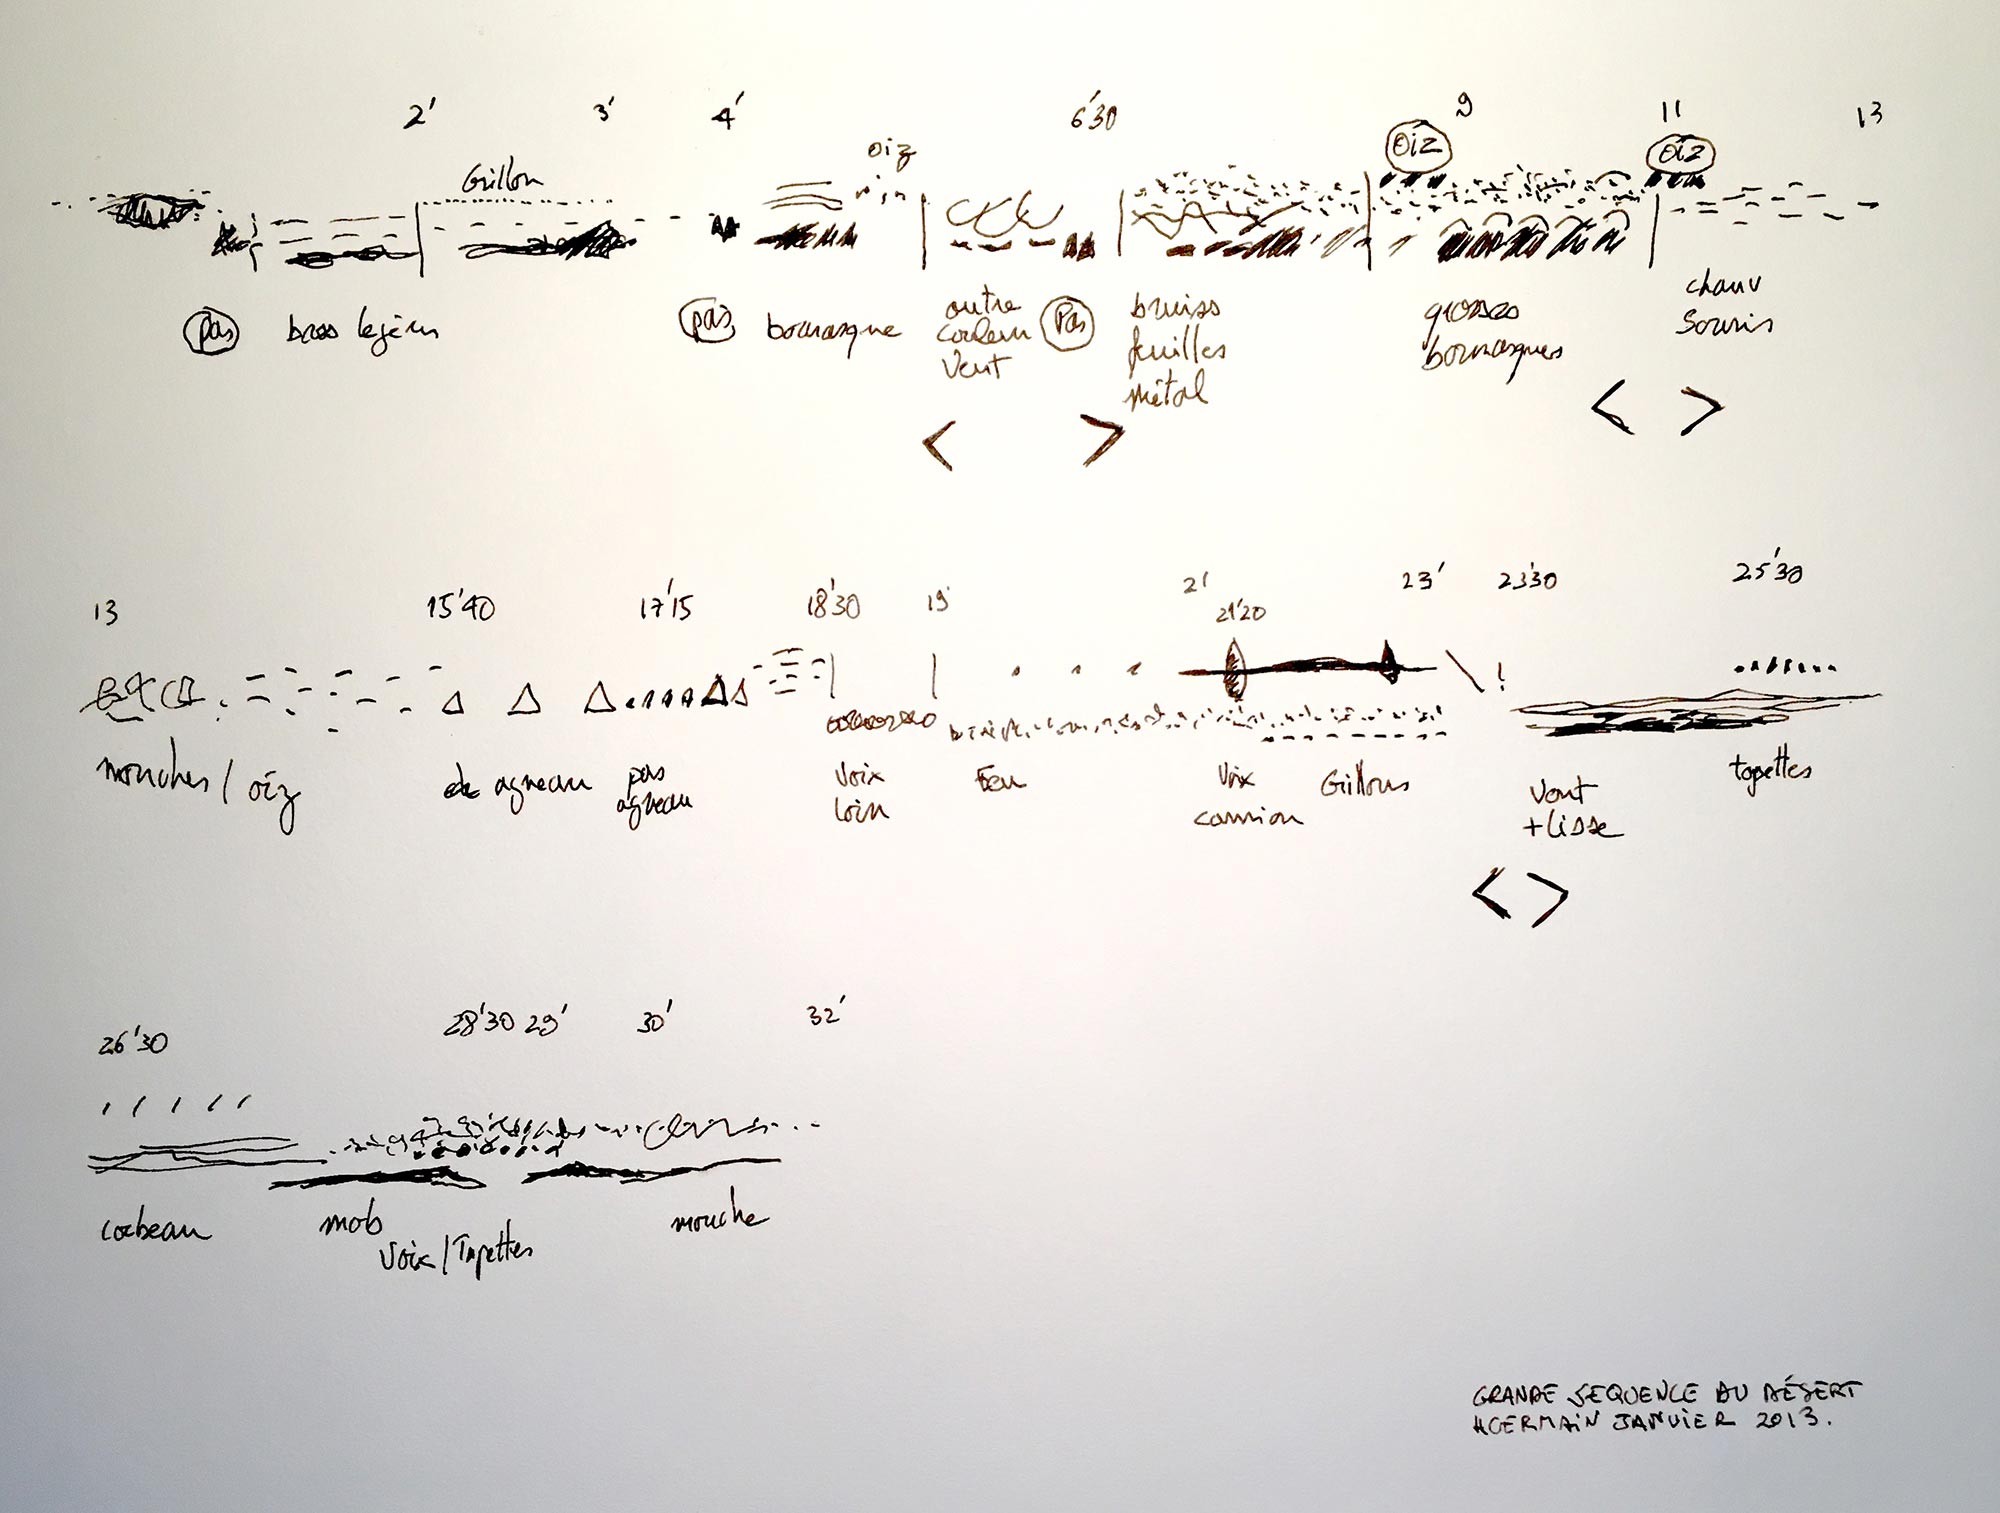 2' 3' 4' 6'30 9 11 13
Grillon oiz oiz oiz
pas pas bourrasque outre couleur vent pas bruiss feuilles métal grosses bourrasques chauv souris
< > < >
13 15'40 17'15 18'30 19' 21' 21'20 23' 23'30 25'30
!
mouches / oiz agneau pas agneau voix loin Feu voix camion Grillons Vent + lisse tapettes
< >
26'30 28'30 29' 30' 32'
corbeau mob Voix / Tapettes mouche
GRANDE SEQUENCE DU DÉSERT
HGERMAIN JANVIER 2013.